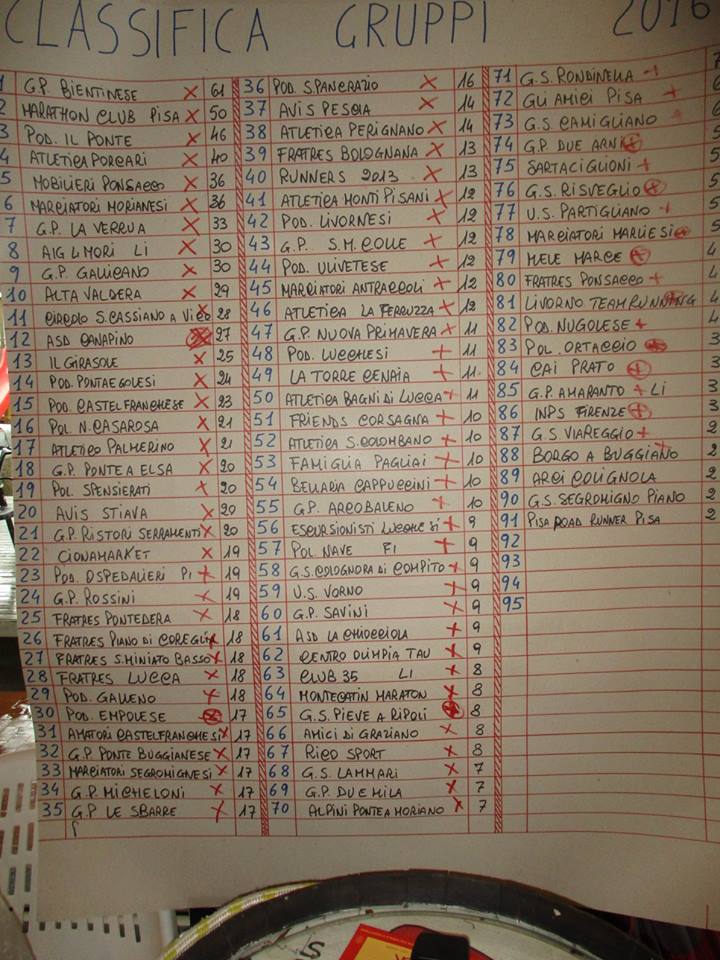 CLASSIFICA GRUPPI 2016
1 G.P. BIENTINESE X 61
2 MARATHON CLUB PISA X 50
3 POD. IL PONTE X 46
4 ATLETICA PORCARI X 40
5 MOBILIERI PONSACCO X 36
6 MARCIATORI MORIANESI X 36
7 G.P. LA VERRUA X 33
8 AIGLMORI LI X 30
9 G.P. GALLICANO X 30
10 ALTA VALDERA X 29
11 CIRCOLO S.CASSIANO A VICO X 28
12 ASD CANAPINO X 27
13 IL GIRASOLE X 25
14 POD. PONTAEGOLESI X 24
15 POD. CASTELFRANCHESE X 23
16 POL. N. CASAROSA X 21
17 ATLETICO PALMERINO X 21
18 G.P. PONTE A ELSA X 20
19 POL. SPENSIERATI X 20
20 AVIS STIAVA X 20
21 G.P. RISTORI SERRAMENTI X 20
22 CIONAMARKET X 19
23 POD. OSPEDALIERI PI X 19
24 G.P. ROSSINI X 19
25 FRATRES PONTEDERA X 18
26 FRATRES PIANO DI COREGLIA X 18
27 FRATRES S.MINIATO BASSO X 18
28 FRATRES LUCCA X 18
29 POD. GALLENO X 18
30 POD. EMPOLESE X 17
31 AMATORI CASTELFRANCHESI X 17
32 G.P. PONTE BUGGIANESE X 17
33 MARCIATORI SEGROMIGNESI X 17
34 G.P. MICHELONI X 17
35 G.P LE SBARRE X 17
36 POD. SPANERAZIO X 16
37 AVIS PESCIA X 14
38 ATLETICA PERIGNANO X 14
39 FRATRES BOLOGNANA X 13
40 RUNNERS 2013 X 13
41 ATLETICA MONTI PISANI X 12
42 POD. LIVORNESI X 12
43 G.P. S.M. COLLE X 12
44 POD. ULIVETESE X 12
45 MARCIATORI ANTRACCOLI X 12
46 ATLETICA LA FERRUZZA X 12
47 G.P. NUOVA PRIMAVERA X 11
48 POD. LUCCHESI X 11
49 LA TORRE CENAIA X 11
50 ATLETICA BAGNI DI LUCCA X 11
51 FRIENDS CORSAGNA X 10
52 ATLETICA S.COLOMBANO X 10
53 FAMIGLIA PAGLIAI X 10
54 BELLARIA CAPPUCCINI X 10
55 G.P. ARCOBALENO X 10
56 ESCURSIONISTI LUCCHESI X 9
57 POL. NAVE FI X 9
58 G.S. COLOGNORA DI COMPITO X 9
59 U.S. VORNO X 9
60 G.P. SAVINI X 9
61 ASD LA CHIOCCIOLA X 9
62 CENTRO OLIMPIA TAU X 9
63 CLUB 35 LI X 8
64 MONTECATIN MARATON X 8
65 G.S. PIEVE A RIPOLI X 8
66 AMICI DI GRAZIANO X 8
67 RICO SPORT X 8
68 G.S. LAMMARI X 7
69 G.P. DUE MILA X 7
70 ALPINI PONTE A MORIANO X 7
71 G.S. RONDINELLA X
72 GLI AMICI PISA X
73 G.S. CAMIGLIANO X
74 G.P. DUE ARNI X
75 SARTACIGLIONI X 5
76 G.S. RISVEGLIO X 5
77 U.S. PARTIGLIANO X 5
78 MARCIATORI MARLIESI X 5
79 MELE MARCE X 4
80 FRATRES PONSACCO X 4
81 LIVORNO TEAM RUNNING 4
82 POD. NUGOLESE X 4
83 POL. ORTACCIO X 3
84 CAI PRATO X 3
85 G.P. AMARANTO X LI 3
86 INPS FIRENZE X 3
87 G.S VIAREGGIO X 2
88 BORGO A BUGGIANO X 2
89 ARCI COLIGNOLA 2
90 G.S. SEGROMIGNO PIANO 2
91 PISA ROAD RUNNER PISA 2
92
93
94
95